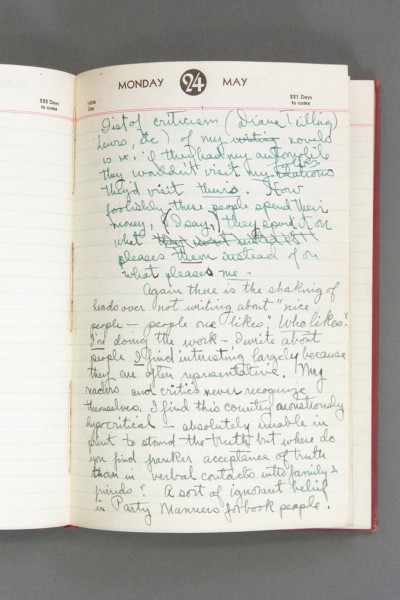 MONDAY 24 MAY
144th Day
221 Days to come
222 Days to come
Gist of criticism (Diana Trilling,
Lewis, etc) of my writing novels
is vs. if they had my automobile
they wouldn't visit my stations folks
they'd visit theirs. How
foolishly these people spend their
money, (I say,) they spend it on
what they want instead of
pleases them instead of on
what pleases me -
Again there is the shaking of
heads over not writing about "nice
people - people one likes." Who likes?
I'm doing the work - I write about
people I find interesting largely because
they are often representative. My
readers and critics never recognize
themselves. I find this country monstrously
hypocritical - absolutely unable in
print to stand the truth but where do
you find franker acceptance of truth
than in verbal contacts with family &
friends? A sort of ignorant belief
in Party Manners for book people.